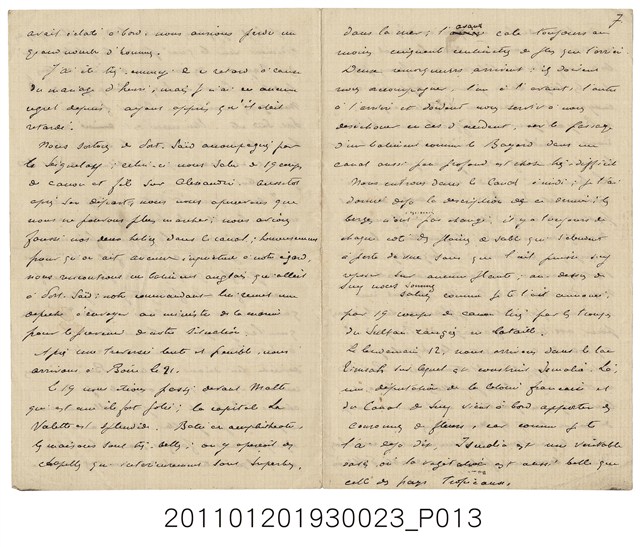 avait éclaté à bord; nous aurions perdu un
grand nombre d'hommes.
J'ai été très ennuyé de ce retard à cause
du mariage d'henri, mais je n'ai eu aucun
regret depuis, ayant appris qu'il était
retardé.
Nous sortons de Port-Saïd accompagnés par
le Seignelay; celui-ci nous salue de 19 coups
de canon et file sur Alexandrie. aussitôt
après son départ, nous nous apercevons que
nous ne pouvons plus marcher; nous avions
faussé nos deux hélices dans le canal; heureusement
pour qu'on ait aucune inquiétude à notre égard,
nous rencontrons un bateau anglais qui allait
à Port-Saïd; notre commandant lui remet une
dépêche à envoyer au ministre de la marine
pour le prévenir de notre situation.
Après une traversée lente et pénible, nous
arrivons à Bône le 21.
Le 19 nous étions passés devant Malte
qui est une île fort jolie; la capitale La
Valette est splendide. Bâtie en amphithéâtre,
les maisons sont très belles; on y aperçoit des
chapelles qui intérieurement sont superbes.
7
dans la mer; l'avant cale toujours au
moins cinquante centimètres de plus que l'arrière
Deux remorqueurs arrivent; ils doivent
nous accompagner, l'un à l'avant, l'autre
à l'arrière et doivent nous servir à nous
déséchouer en cas d'accident, car le passage
d'un bâtiment comme le Bayard dans un
canal aussi peu profond est chose très difficile
Nous entrons dans le Canal à midi; je t'ai
donné déjà la description de ce dernier; les
berges n'ont pas changé, il y a toujours de
chaque côté des plaines de sable qui s'étendent
à perte de vue sans que l'œil puisse s'y
reposer sur aucune plante; au dessus de
Suez nous sommes
salués comme je te l'ai annoncé,
par 19 coups de canon tirés par les troupes
du Sultan rangées en bataille.
Le lendemain 12, nous arrivons dans le lac
Timsah sur lequel est construit Ismalia. Là,
une députation de la colonie française et
du Canal de Suez vient à bord apporter des
couronnes de fleurs, car comme je te
l'ai déjà dit, Ismalia est une véritable
oasis où la végétation est aussi belle que
celle des pays Tropicaux.
201101201930023_P013